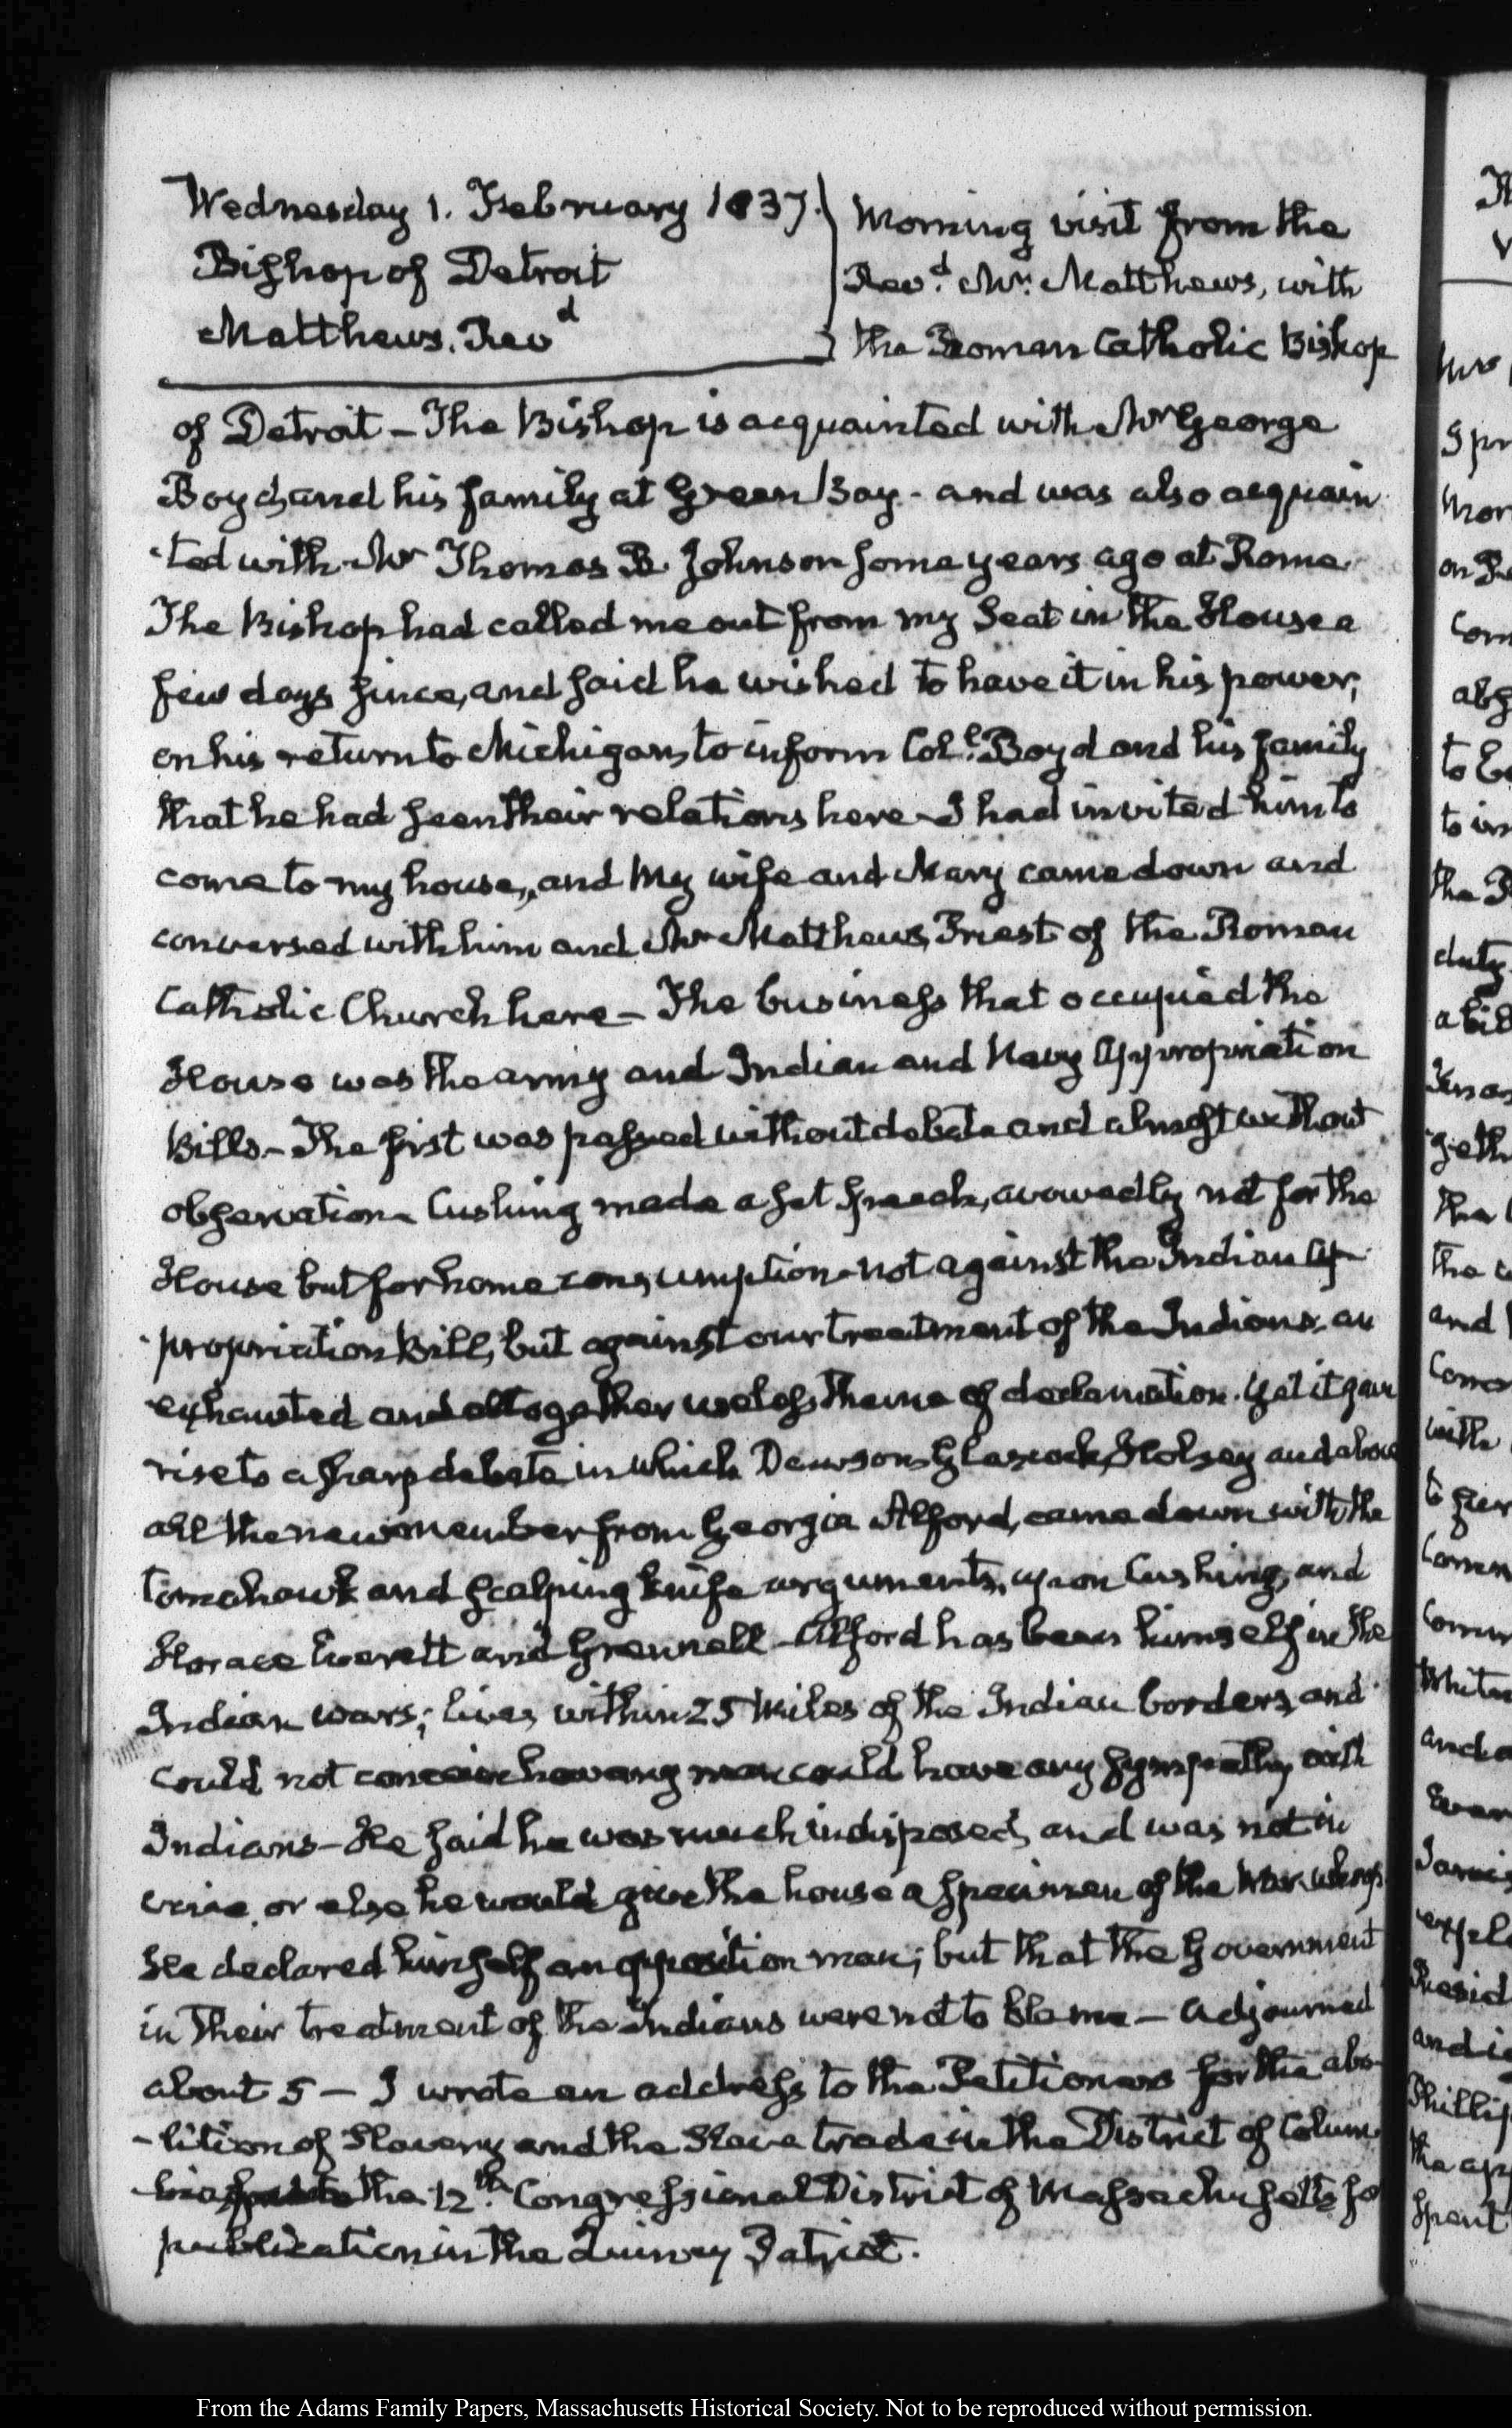 Wednesday 1. February 1837.
Bishop of Detroit
Matthews. Revd
Morning visit from the
Revd. Mr. Matthews, with
the Roman Catholic Bishop
of Detroit – The Bishop is acquainted with Mr George
Boyd and his family at Green Bay - and was also acquain
-ted with Mr Thomas B. Johnson some years ago at Rome.
The Bishop had called me out from my Seat in the House a
few days since, and said he wished to have it in his power,
on his return to Michigan, to inform Coll. Boyd and his family
that he had seen their relations here – I had invited him to
come to my house, and my wife and Mary came down and
conversed with him and Mr Matthews, Priest of the Roman
Catholic Church here – The business that occupied the
House was the army and Indian and Navy Appropriation
Bills – The first was passed without debate and almost without
observation – Cushing made a set speech, avowedly not for the
House but for home consumption – not against the Indian Ap-
-propriation Bill, but against our treatment of the Indians, an
exhausted and altogether useless theme of declamation. Yet it gave
rise to a sharp debate in which Dawson, Glascock, Holsey and above
all the new member from Georgia Alford, came down with the
tomahawk and scalping knife arguments, upon Cushing, and
Horace Everett and Grennell – Alford has been himself in the
Indian wars; lives within 25 miles of the Indian borders, and
could not conceive how any man could have any sympathy with
Indians – He said he was much indisposed, and was not in
voice, or else he would give the house a specimen of the War whoop.
He declared himself an opposition man; but that the Government
in their treatment of the Indians were not to blame – adjourned
about 5 – I wrote an address to the Petitioners for the abo-
-lition of Slavery and the Slave trade in the District of Colum-
-bia the 12th. Congressional District of Massachusetts for
publication in the Quincy Patriot.
From the Adams Family Papers, Massachusetts Historical Society. Not to be reproduced without permission.